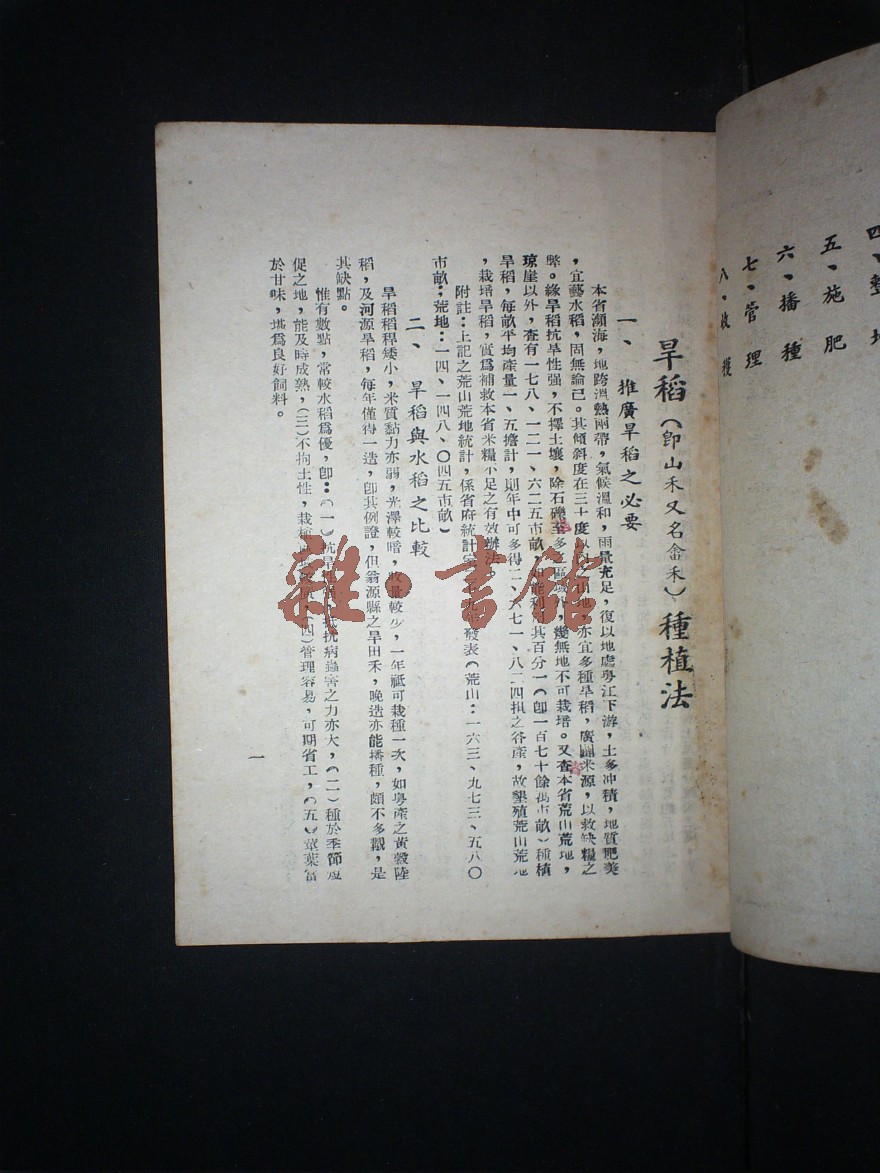 四、整地
五、施肥
六、播種
七、管理
八、收穫
旱稻(卽山禾又名畬禾)種植法
一、推廣旱稻之必要
本省瀕海,地跨溫熱兩帶,氣候溫和,雨量充足,復以地處粵江下游,土多冲積,地質肥美
,宜藝水稻,固無論已。其傾斜度在三十度以內之山地,亦宜多種旱稻,廣闢米源,以救缺糧之
弊。緣旱稻抗旱性强,不擇土壤,除石礫至多之區域外,幾無地不可栽培。又查本省荒山荒地,
琼崖以外,查有一七八、一二一、六二五市畝,如能利用其百分一(卽一百七十餘萬市畝)種植
旱稻,每畝平均產量一、五擔計,則年中可多得二、六七一、八二四担之谷產,故墾殖荒山荒地
,栽培旱稻,實爲補救本省米糧不足之有效辦法。
附註:上記之荒山荒地統計,係省府統計室 九年發表(荒山:一六三、九七三、五八〇
市畝;荒地:一四、一四八、〇四五市畝)
二、旱稻與水稻之比較
旱稻稻稈矮小,米質黏力亦弱,光澤較暗,收量較少,一年祗可栽種一次,如粵產之黃榖陸
稻,及河源旱稻,每年僅得一造,卽其例證,但翁源縣之旱田禾,晚造亦能播種,頗不多覯,是
其缺點。
惟有數點,常較水稻爲優,卽:(一)抗旱性 抵抗病蟲害之力亦大,(二)種於季節短
促之地,能及時成熟,(三)不拘土性,栽植 (四)管理容易,可期省工,(五)莖葉富
於甘味,堪爲良好飼料。
一
雜·書館